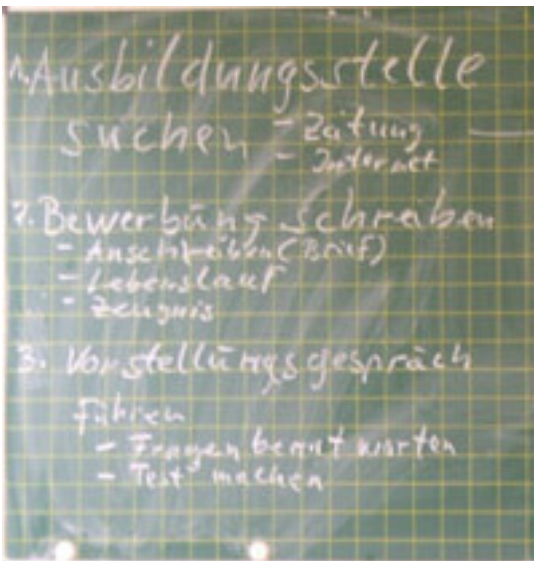 1. Ausbildungsstelle
suchen - Zeitung
- Internet
2. Bewerbung schreiben
- Anschreiben (Brief)
- Lebenslauf
- Zeugnis
3. Vorstellungsgespräch
führen
- Fragen beantworten
- Test machen